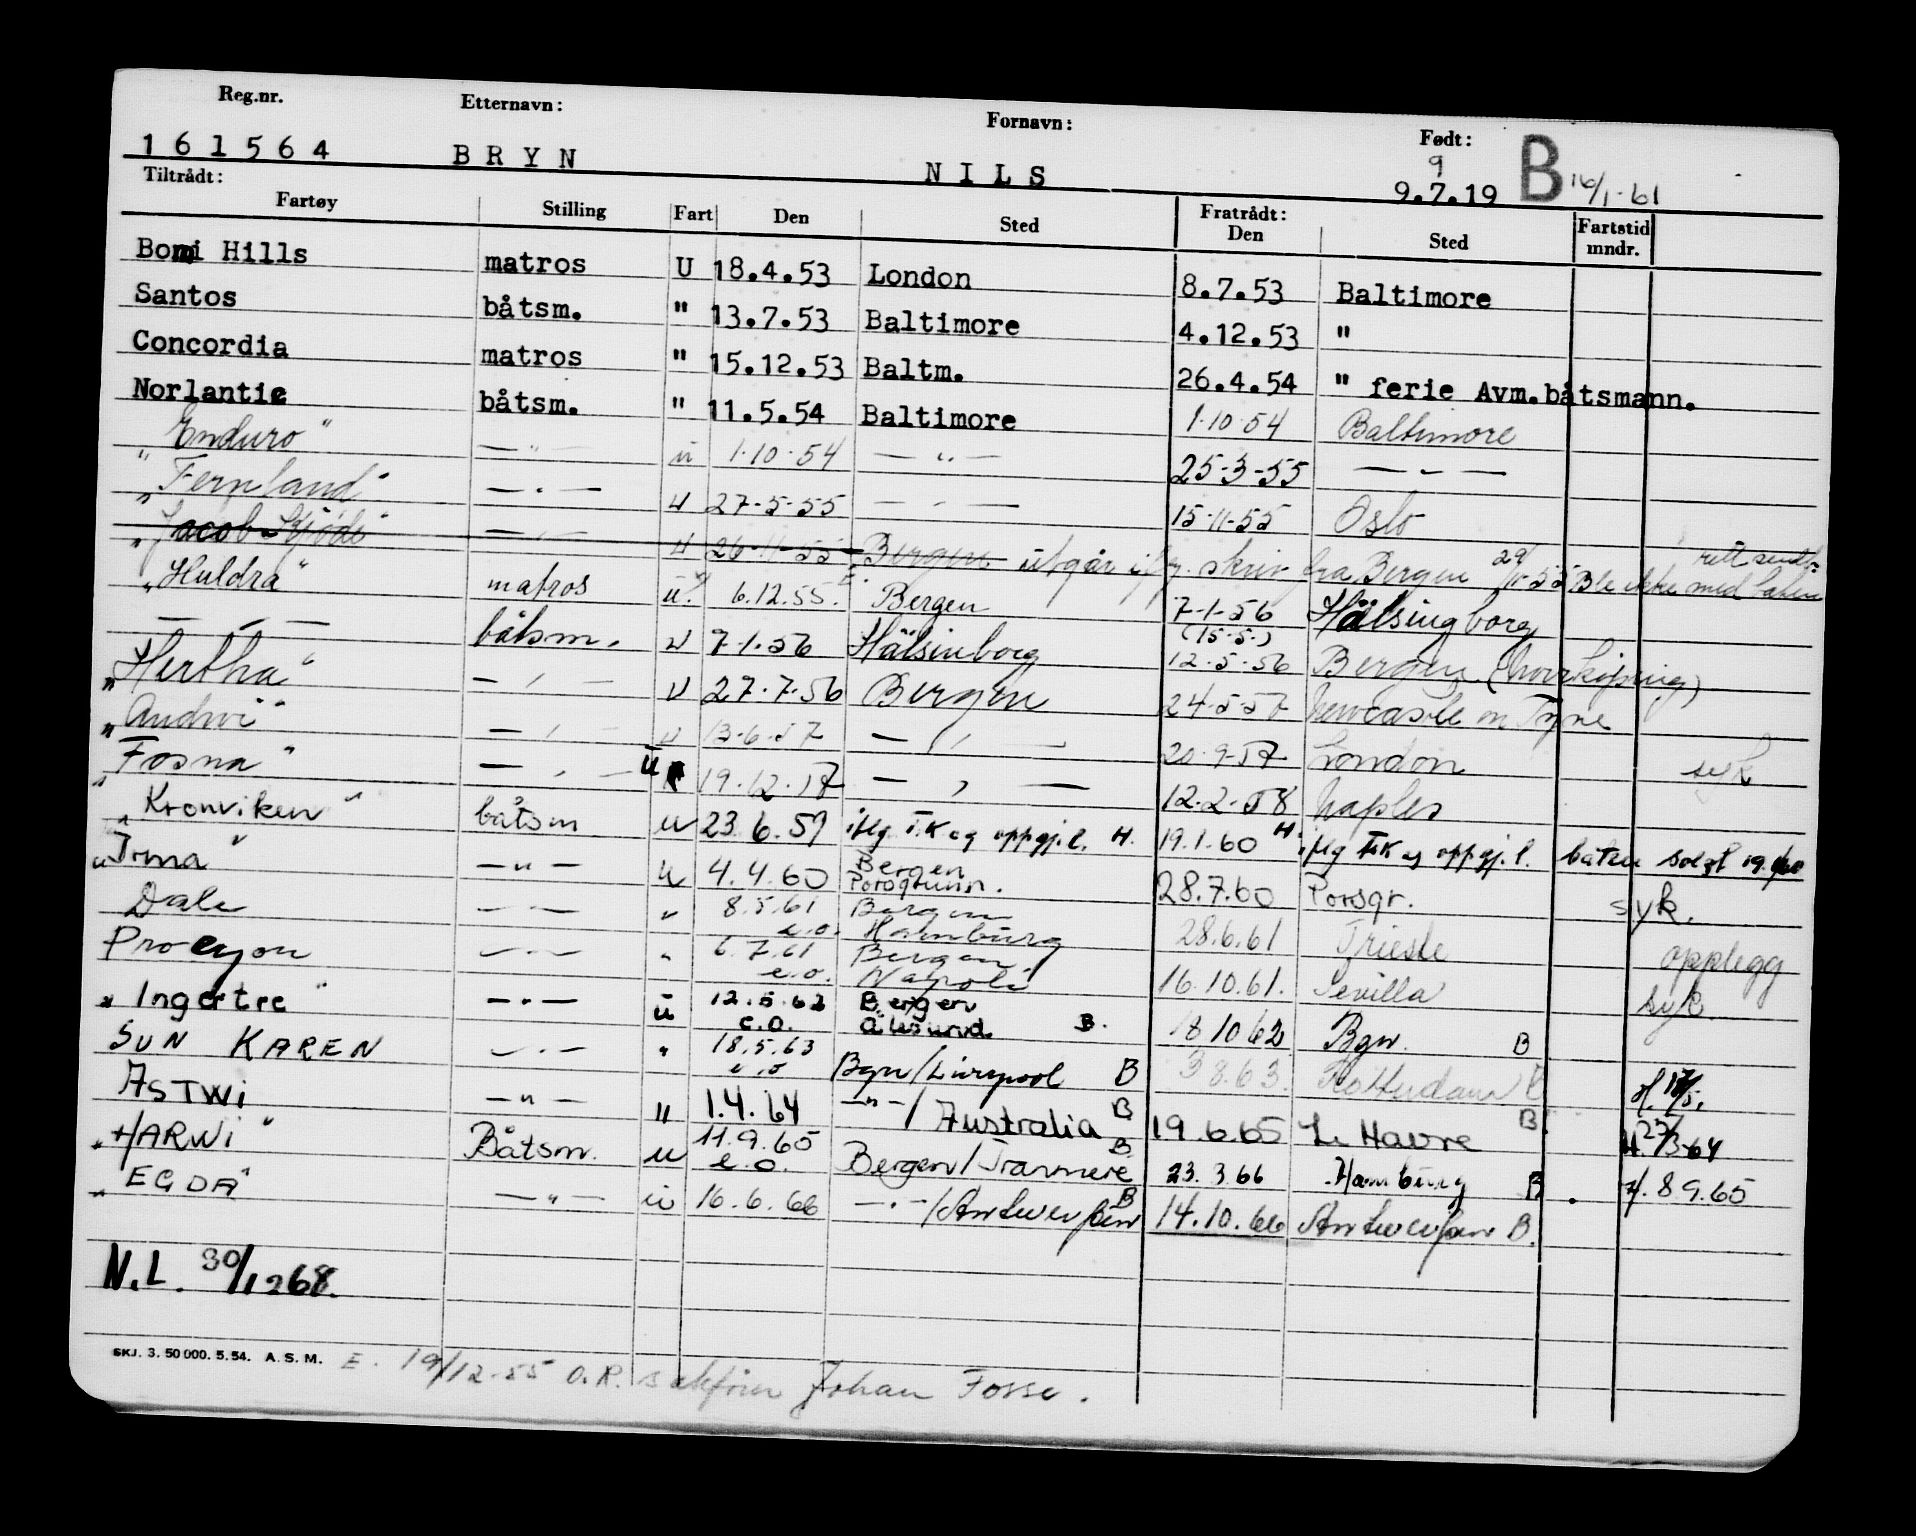 Reg.nr. Etternavn: Fornavn: Født:
161564 BRYN NILS 9.7.19 9 B 16/1-61
Tiltrådt: Fratrådt:
Fartøy Stilling Fart Den Sted Den Sted Fartstid mndr.
Bomi Hills matros U 18.4.53 London 8.7.53 Baltimore
Santos båtsm. " 13.7.53 Baltimore 4.12.53 "
Concordia matros " 15.12.53 Baltm. 26.4.54 " ferie Avm.båtsmann.
Norlantic båtsm. " 11.5.54 Baltimore 1-10-54 Baltimore
"Enduro" — " — u 1-10-54 — " — 25-3-55 — " —
"Fernland" — " — u 27-5-55 — " — 15-11-55 Oslo
"Jacob Kjøde" — " — u 26-11-55 Bergen utgår iflg. skriv fra Bergen 29/11-55 Ble ikke med båten
"Huldra" matros u. 6.12.55. Bergen 7-1-56 Hälsingborg
— " — båtsm. u 7-1-56 Hälsinborg (15-5-) 12-5-56 Bergen (Norrköping)
"Hertha" — " — u 27-7-56 Bergen 24-5-57 Newcastle on Tyne
"Andwi" — " — u 13-6-57 — " — 20-9-57 London syk
"Fosna" — " — u 19.12.57 — " — 12.2-58 Naples
"Kronviken" båtsm u 23.6.59 iflg T.K og oppgj.l. H. 19.1.60 H. iflg T.K og oppgj.l. båten solgt
"Irma" — " — u 4.4.60 Bergen Porsgrunn. 28.7.60 Porsgr. syk.
Dale — " — " 8.5.61 e.o. Bergen Hamburg 28.6.61 Trieste opplegg
Procyon — " — " 6.7.61 e.o. Bergen Napoli 16.10.61. Sevilla syk
"Ingertre" — " — u 12.5.62 e.o. Bergen Ålesund. B. 18 10 62 Bgn. B
SUN KAREN — " — " 18.5.63 e.o Bgn/Liverpool B 3 8.63. Rotterdam B H. 17/5.
ASTWi — " — " 1.4.64 — " — / Australia B 19.6.65 Le Havre B. H 23/3-64
"HARWi" Båtsm. u 11.9.65 e.o. Bergen/Tranmere B. 23.3.66 Hamburg B. H. 8 9.65
"EGDA" — " — u 16.6.66 — " — /Antwerpen B 14.10.66 Antwerpen B.
N.L. 30/12 68.
SKJ. 3. 50 000. 5.54. A. S. M. E. 19/12-55 O.R. sakfører Johan Fosse.